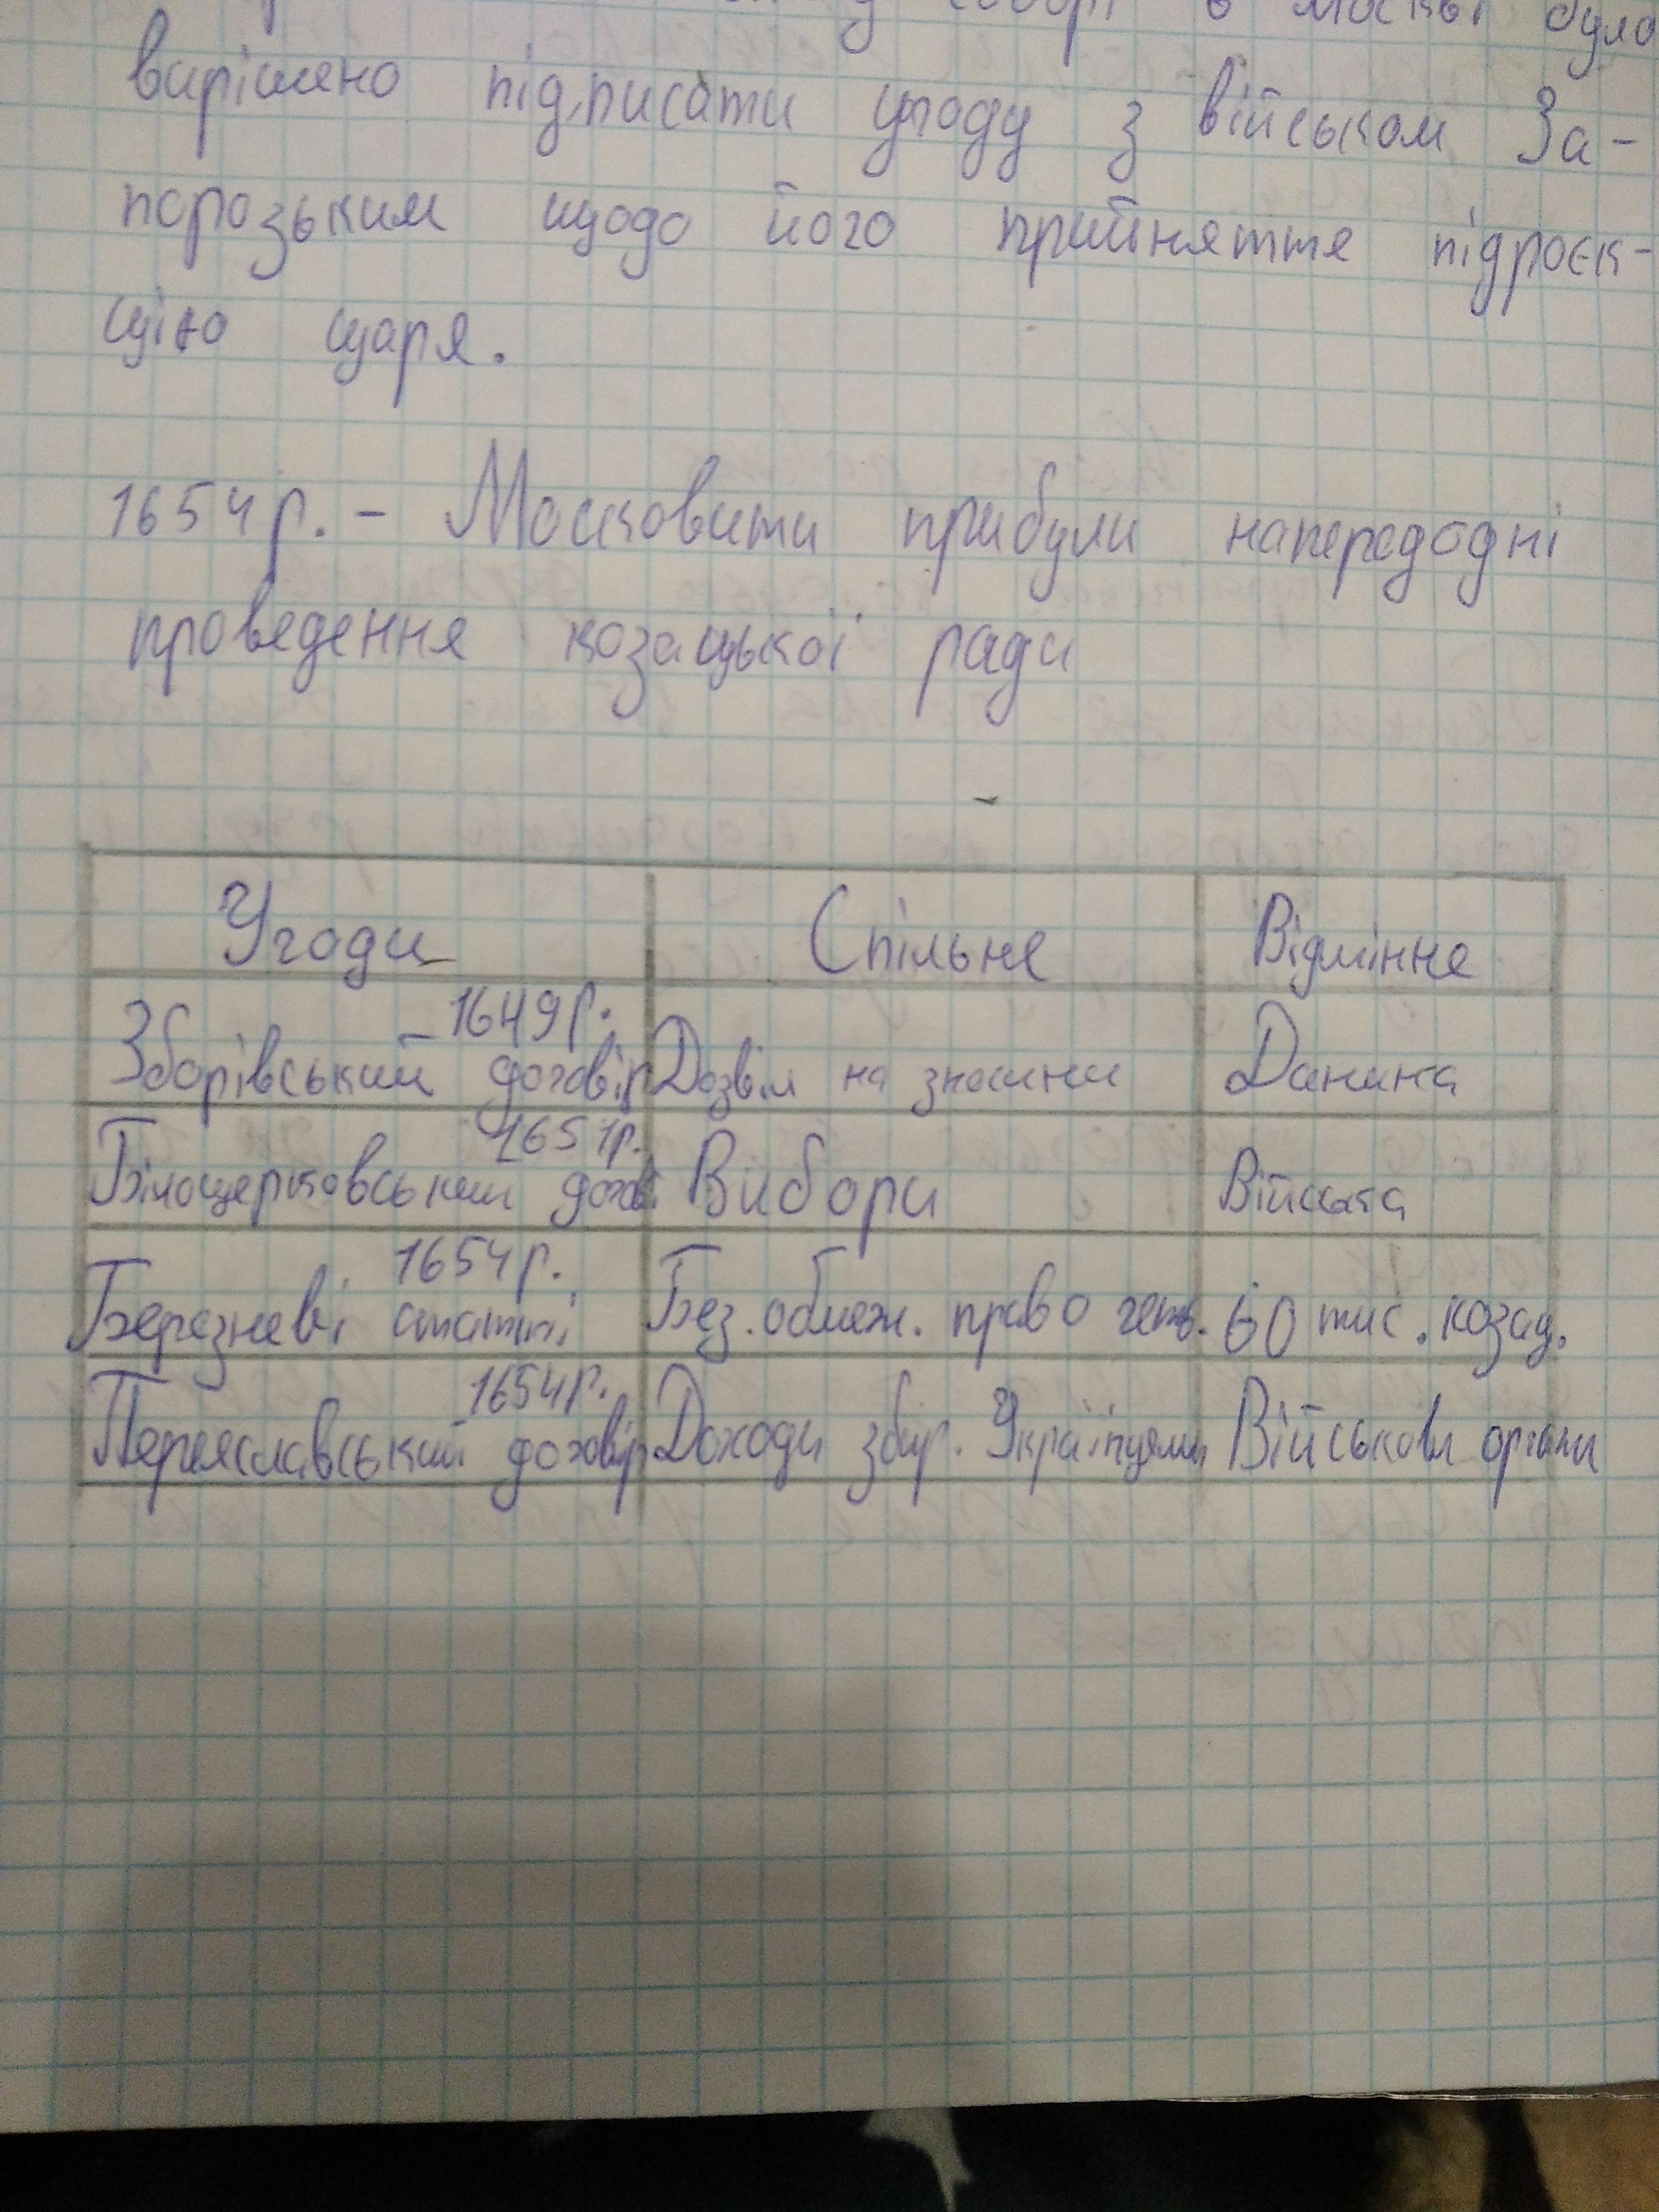 соборі в Москві було
вирішено підписати угоду з військом За-
порозьким щодо його прийняття підроєк-
цію царя.
1654 р. - Московити прибули напередодні
проведення козацької ради
Угоди Спільне Відмінне
Зборівський договір 1649 р. Дозвіл на зносини Данина
Білоцерковський догові 1651 р. Вибори Війська
Березневі статті 1654 р. Без. обмеж. право геть. 60 тис. козац.
Переяславський договір 1654 р. Доходи збир. Українцями Військові органи